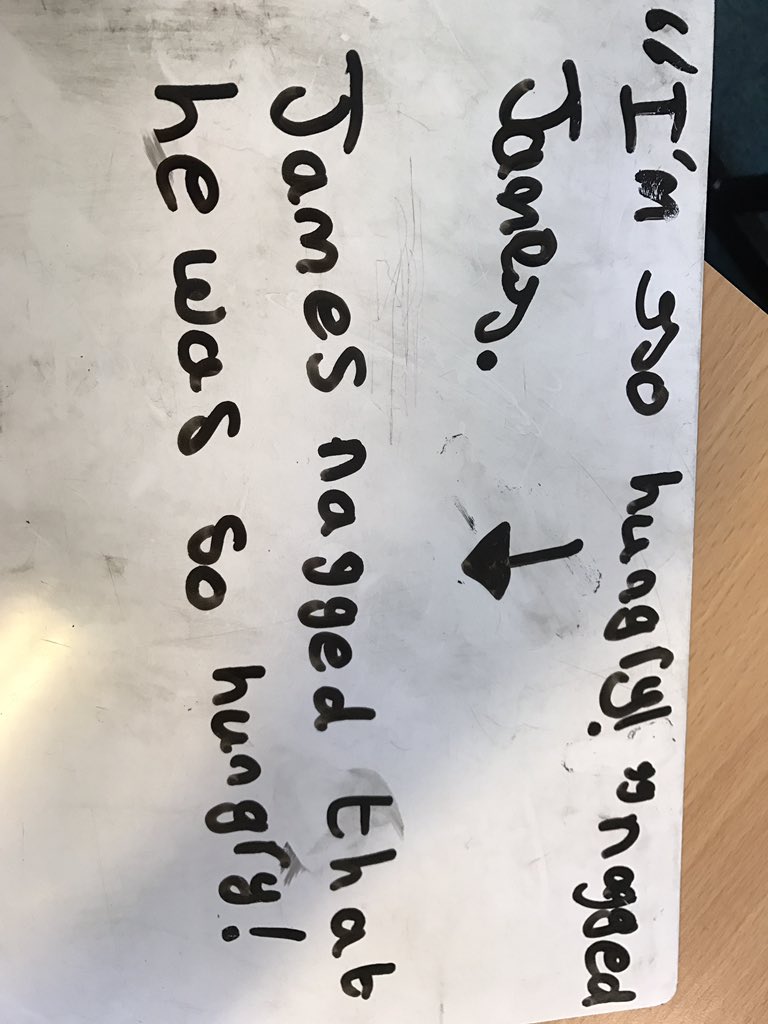 “I'm so hungry!” nagged
James.
James nagged that
he was so hungry!